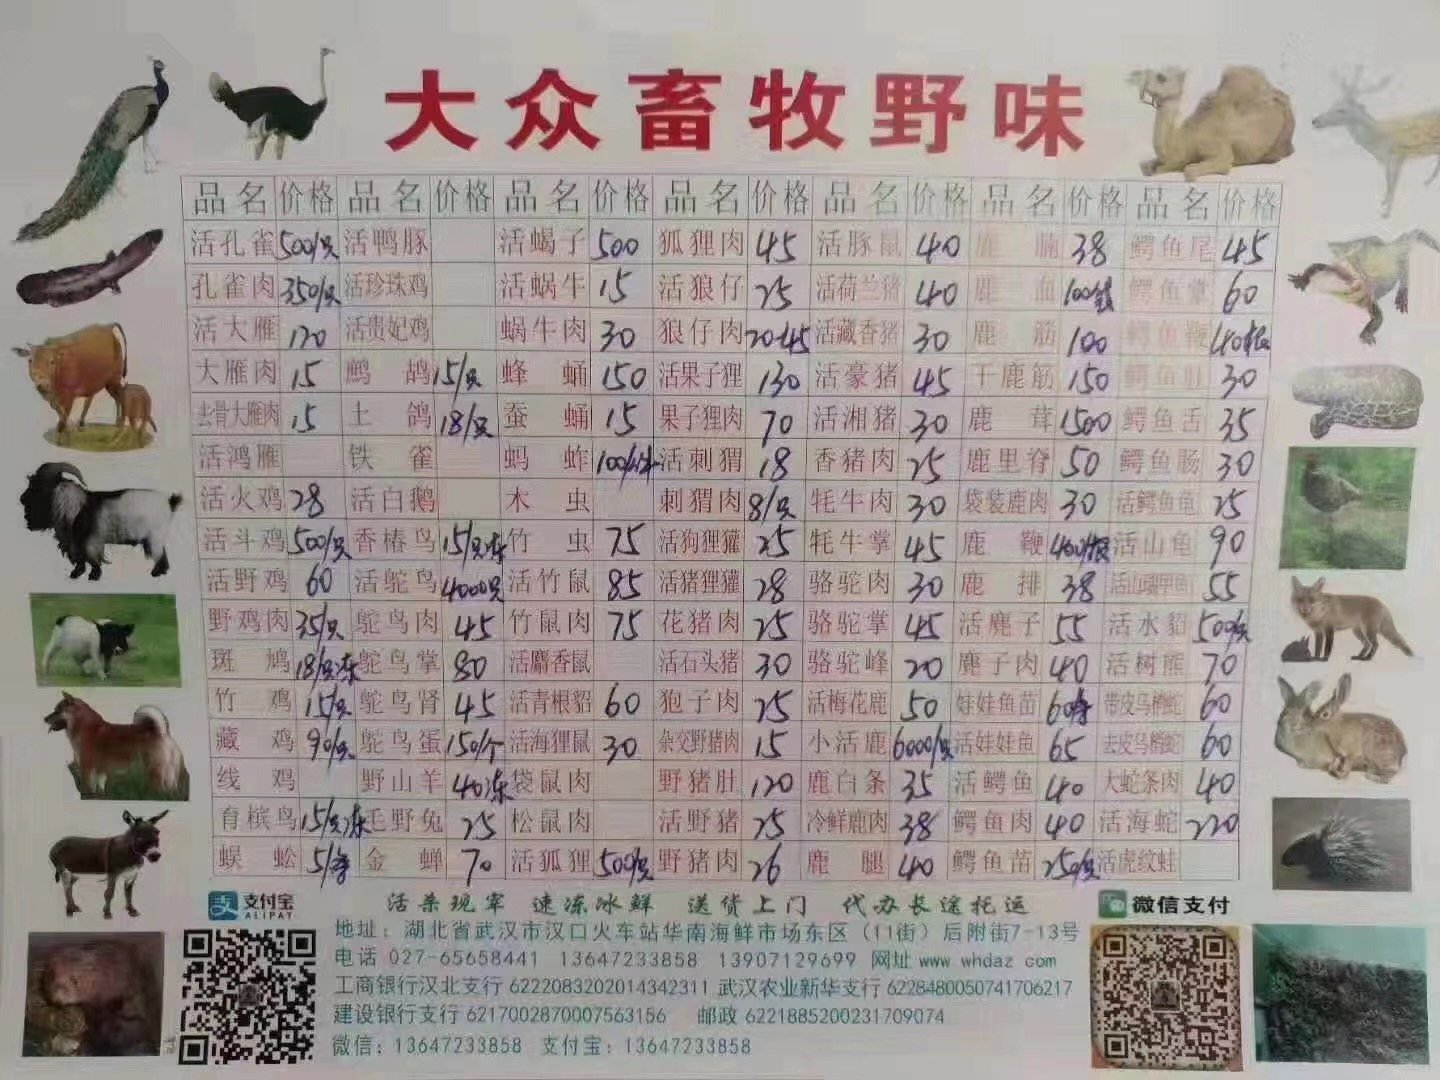 大众畜牧野味
品名 价格 品名 价格 品名 价格 品名 价格 品名 价格 品名 价格 品名 价格
活孔雀 500/只 活鸭豚 活蝎子 500 狐狸肉 45 活豚鼠 40 鹿腩 38 鳄鱼尾 45
孔雀肉 350/只 活珍珠鸡 活蜗牛 15 活狼仔 25 活荷兰猪 40 鹿血 鳄鱼掌 60
活大雁 120 活贵妃鸡 蜗牛肉 30 狼仔肉 20-45 活藏香猪 30 鹿筋 100 鳄鱼鞭 40/根
大雁肉 15 鹧鸪 15/只 蜂蛹 150 活果子狸 130 活豪猪 45 干鹿筋 150 鳄鱼肚 30
去骨大雁肉 15 土鸽 18/只 蚕蛹 15 果子狸肉 70 活湘猪 30 鹿茸 1500 鳄鱼舌 35
活鸿雁 铁雀 蚂蚱 活刺猬 18 香猪肉 25 鹿里脊 50 鳄鱼肠 30
活火鸡 28 活白鹅 木虫 刺猬肉 8/只 牦牛肉 30 袋装鹿肉 30 活鳄鱼龟 25
活斗鸡 500/只 香椿鸟 15/只冻 竹虫 75 活狗狸獾 25 牦牛掌 45 鹿鞭 400/根 活山龟 90
活野鸡 60 活鸵鸟 4000只 活竹鼠 85 活猪狸獾 28 骆驼肉 30 鹿排 38 55
野鸡肉 35/只 鸵鸟肉 45 竹鼠肉 75 花猪肉 25 骆驼掌 45 活麂子 55 活水貂 500/只
斑鸠 18/只冻 鸵鸟掌 80 活麝香鼠 活石头猪 30 骆驼峰 20 麂子肉 40 活树熊 70
竹鸡 15/只 鸵鸟肾 45 活青根貂 60 狍子肉 25 活梅花鹿 50 娃娃鱼苗 带皮乌梢蛇 60
藏鸡 90/只 鸵鸟蛋 150/个 活海狸鼠 30 杂交野猪肉 15 小活鹿 6000/只 活娃娃鱼 65 去皮乌梢蛇 60
线鸡 野山羊 40冻 袋鼠肉 野猪肚 120 鹿白条 35 活鳄鱼 40 大蛇条肉 40
育槟鸟 15/只冻 毛野兔 25 松鼠肉 活野猪 25 冷鲜鹿肉 38 鳄鱼肉 40 活海蛇 220
蜈蚣 金蝉 70 活狐狸 500/只 野猪肉 26 鹿腿 40 鳄鱼苗 250/只 活虎纹蛙
支付宝
ALIPAY
活杀现宰 速冻冰鲜 送货上门 代办长途托运
微信支付
地址：湖北省武汉市汉口火车站华南海鲜市场东区（11街）后附街7-13号
电话 027-65658441 13647233858 13907129699 网址 www whdaz com
工商银行汉北支行 6222083202014342311 武汉农业新华支行 6228480050741706217
建设银行支行 6217002870007563156 邮政 6221885200231709074
微信：13647233858 支付宝：13647233858